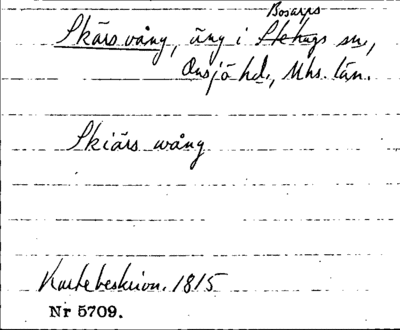 Bosarps
Skärsvång, äng i Stehags sn,
Onsjö hd., Mhs. län.
Skiärs wång
Kartebeskrivn. 1815
Nr 5709.